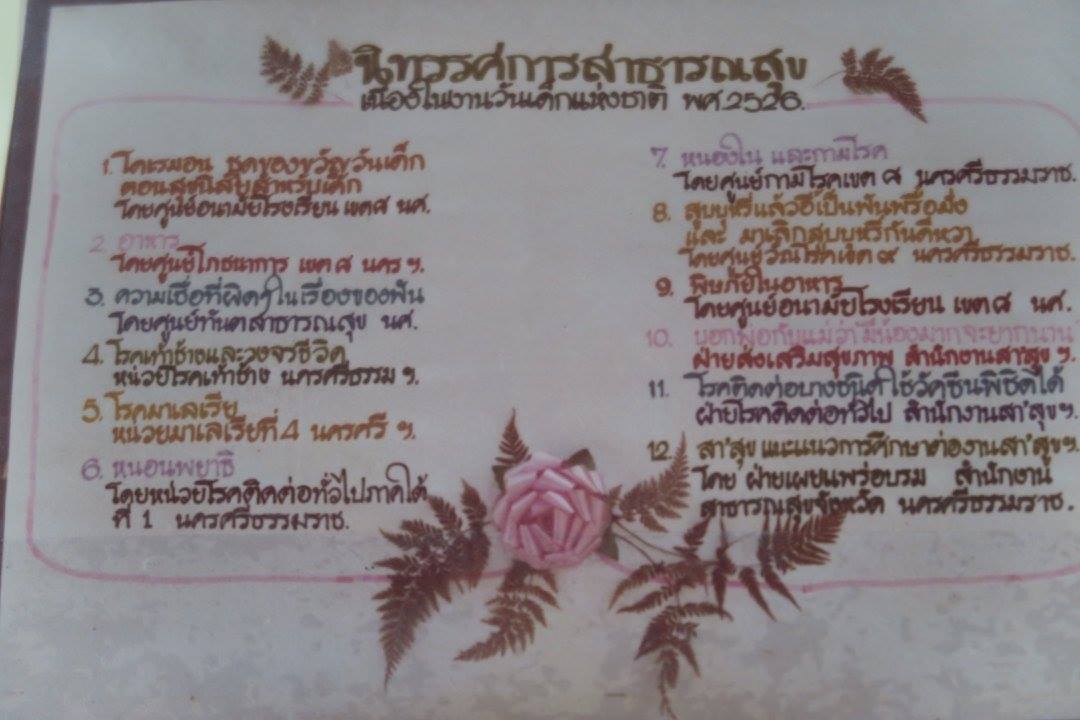 นิทรรศการสาธารณสุข
เนื่องในงานวันเด็กแห่งชาติ พศ.2526.
1. โดเรมอน ชุดของขวัญวันเด็ก
ตอนสุขนิสัยสำหรับเด็ก
โดยศูนย์อนามัยโรงเรียน เขต ๘ นศ.
2. อาหาร
โดยศูนย์โภชนาการ เขต ๘ นคร ฯ.
3. ความเชื่อที่ผิดๆในเรื่องของฟัน
โดยศูนย์ทันตสาธารณสุข นศ.
4. โรคเท้าช้างและวงจรชีวิต
หน่วยโรคเท้าช้าง นครศรีธรรม ฯ.
5. โรคมาเลเรีย
หน่วยมาเลเรียที่ 4 นครศรี ฯ.
6. หนอนพยาธิ
โดยหน่วยโรคติดต่อทั่วไปภาคใต้
ที่ 1 นครศรีธรรมราช.
7. หนองใน และกามโรค
โดยศูนย์กามโรคเขต ๘ นครศรีธรรมราช.
8. สูบบุหรี่แล้วอี้เป็นพันพรื่อมั่ง
และ มาเลิกสูบบุหรี่กันดีหวา
โดยศูนย์วัณโรคเขต ๙ นครศรีธรรมราช.
9. พิษภัยในอาหาร
โดยศูนย์อนามัยโรงเรียน เขต ๘ นศ.
10. บอกพ่อกับแม่ว่า มีน้องมากจะยากนาน
ฝ่ายส่งเสริมสุขภาพ สำนักงานสา'สุข ฯ.
11. โรคติดต่อบางชนิด ใช้วัคซีนพิชิตได้
ฝ่ายโรคติดต่อทั่วไป สำนักงานสา'สุข ฯ.
12. สา'สุข แนะแนวการศึกษาต่องานสา'สุข ฯ.
โดย ฝ่ายเผยแพร่อบรม สำนักงาน
สาธารณสุขจังหวัด นครศรีธรรมราช.